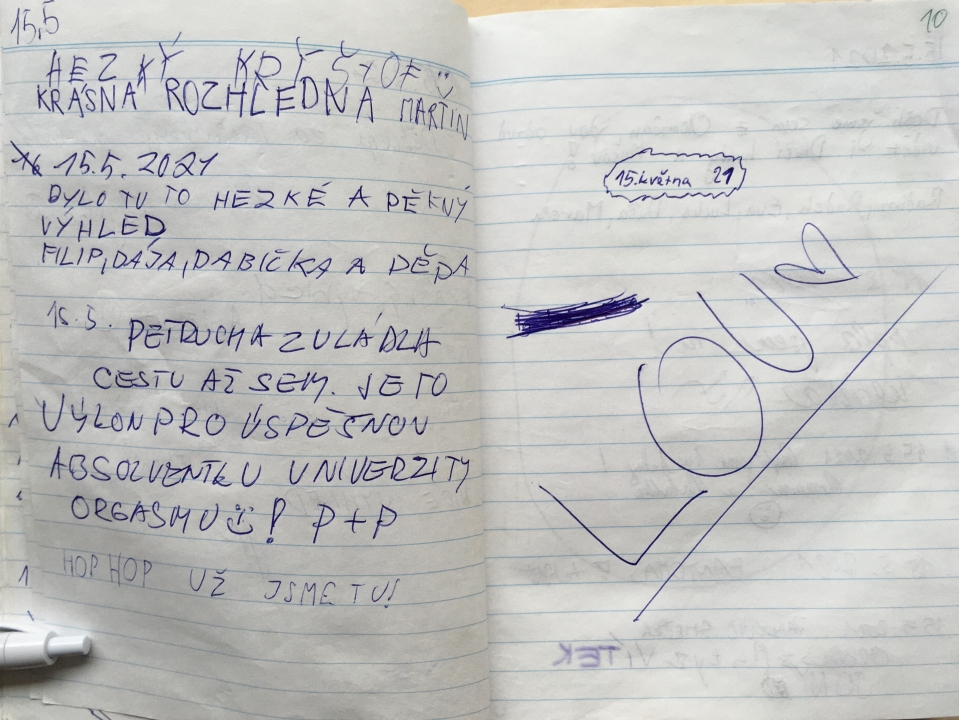 15,5
HEZKÝ KRYŠTOF
KRÁSNÁ ROZHLEDNA MARTIN
15.5. 2021
BYLO TU TO HEZKÉ A PĚKNÝ
VÝHLED
FILIP, DÁJA, BABIČKA A DĚDA
15.5.
PETRUCHA ZVLÁDLA
CESTU AŽ SEM. JE TO
VÝKON PRO ÚSPĚŠNOU
ABSOLVENTKU UNIVERZITY
ORGASMU ! P+P
HOP HOP UŽ JSME TU!
10
15. května 21
LOUD